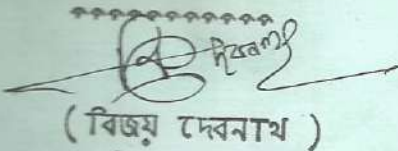 ( বিজয় দেবনাথ )